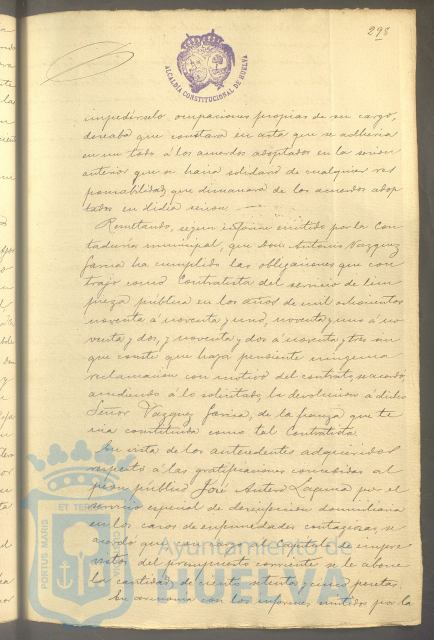 298
ALCALDÍA CONSTITUCIONAL DE HUELVA
impedírselo ocupaciones propias de su cargo,
deseaba que constara en acta que se adheria
en un todo á los acuerdos adoptados en la sesion
anterior que se hacia solidario de cualquier res
ponsabilidad que dimanara de los acuerdos adop
tados en dicha sesion.
Resultando, segun informe emitido por la Con
taduría municipal, que Don Antonio Vazquez
Garcia ha cumplido las obligaciones que con
trajo como Contratista del servicio de lim
pieza pública en los años de mil ochocientos
noventa á noventa y uno, noventa y uno á no
venta y dos, y noventa y dos á noventa y tres sin
que conste que haya pendiente ninguna
reclamacion con motivo del contrato, se acordó,
accediendo á lo solicitado, la devolucion á dicho
Señor Vazquez Garcia, de la fianza que te
nia constituida como tal Contratista.
En vista de los antecedentes adquiridos
respecto á las gratificaciones concedidas al
peon público José Antero Laguna por el
servicio especial de desinfeccion domiciliaria
en los casos de enfermedades contagiosas, se
acordó que con cargo al Capítulo de impre
vistos del presupuesto corriente se le abone
la cantidad de ciento setenta y cinco pesetas.
En consonancia con los informes emitidos por la
PORTUS MARIS ET TERRAE
Ayuntamiento de
HUELVA